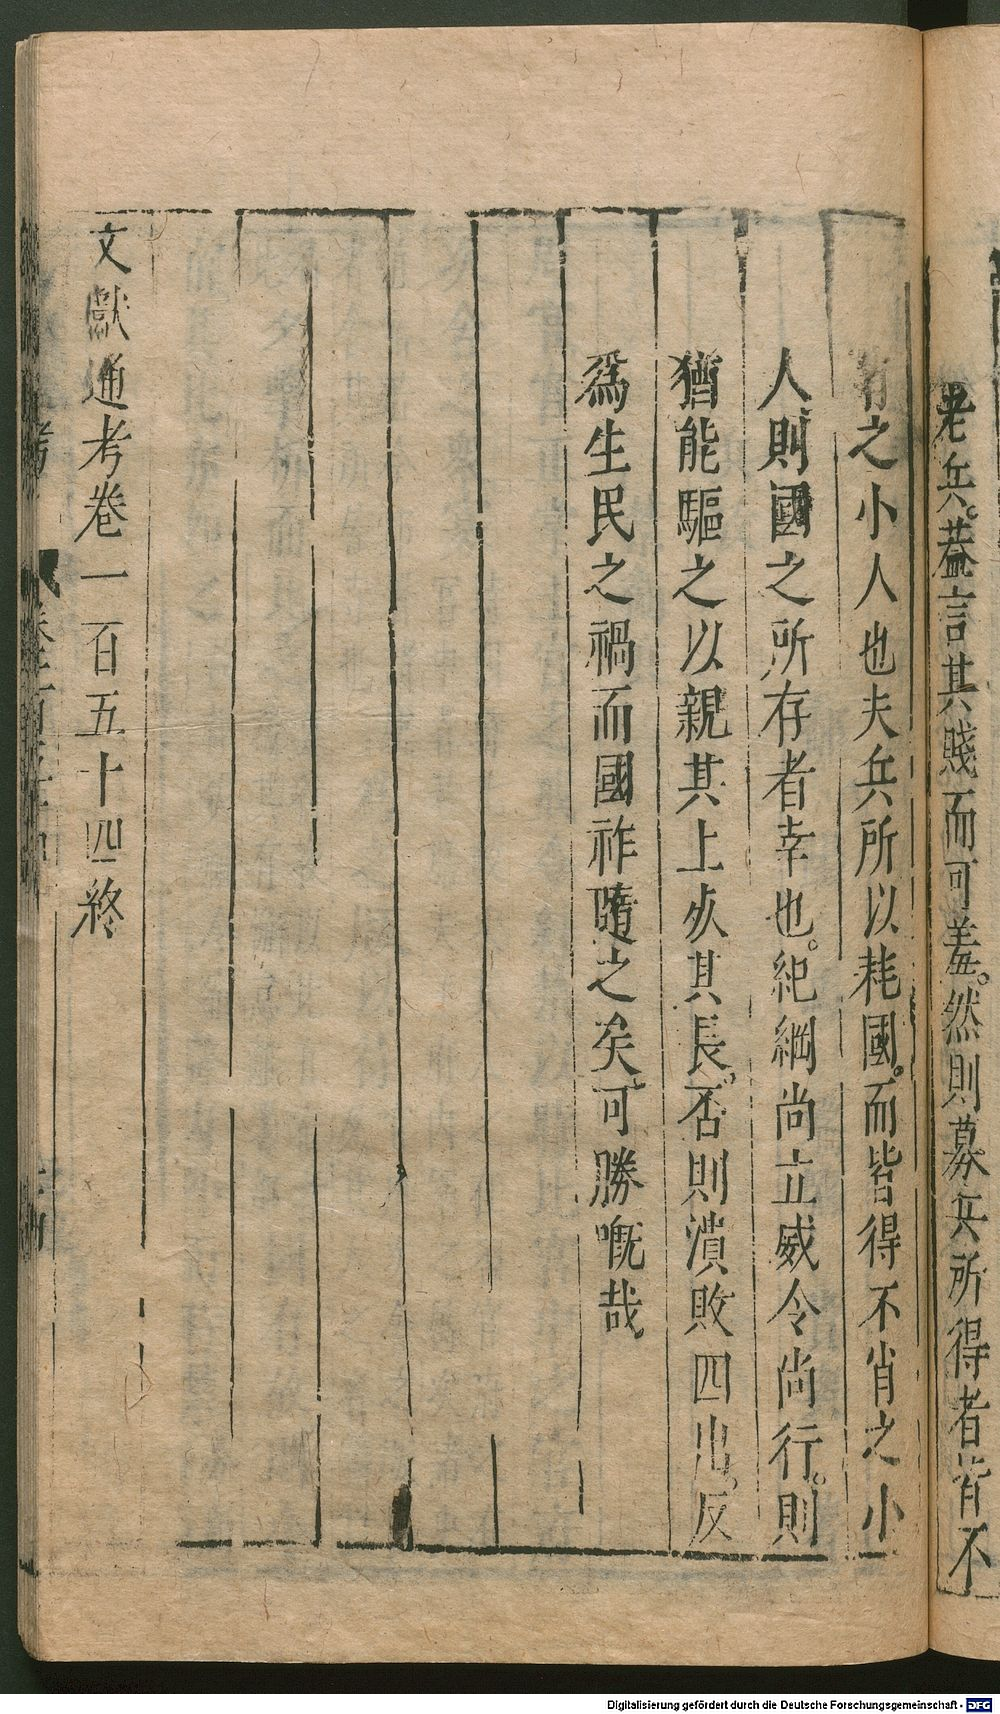 老兵。葢言其賤而可羞。然則募兵所得者皆不
肖之小人也夫兵所以耗國。而皆得不肖之小
人則國之所存者幸也。紀綱尚立威令尚行。則
猶能驅之以親其上死其長。否則潰敗四出。反
爲生民之禍而國祚隨之矣。可勝嘅哉
文獻通考卷一百五十四終
Digitalisierung gefördert durch die Deutsche Forschungsgemeinschaft - DFG